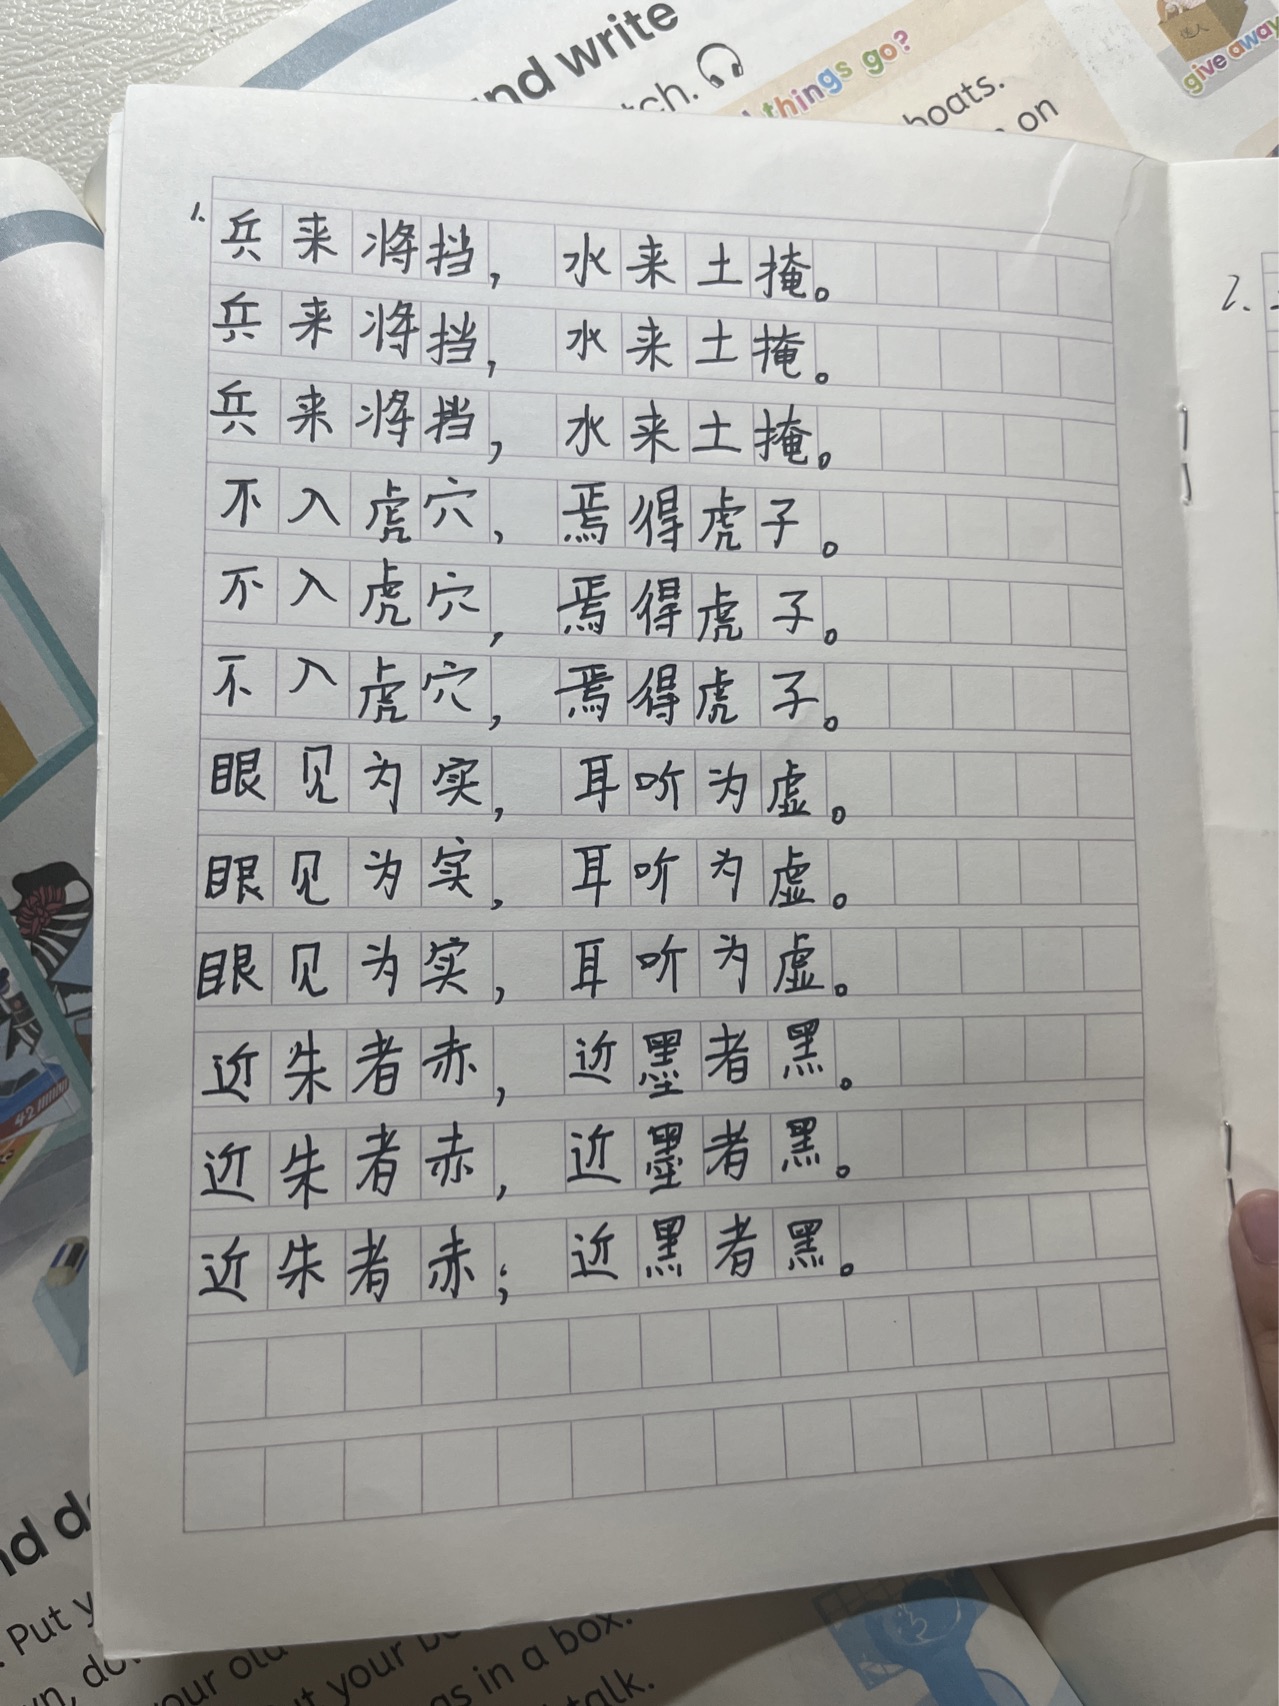 and write
tch.
things go?
give away
boats.
on
1.
兵来将挡，水来土掩。
兵来将挡，水来土掩。
兵来将挡，水来土掩。
不入虎穴，焉得虎子。
不入虎穴，焉得虎子。
不入虎穴，焉得虎子。
眼见为实，耳听为虚。
眼见为实，耳听为虚。
眼见为实，耳听为虚。
近朱者赤，近墨者黑。
近朱者赤，近墨者黑。
近朱者赤；近黑者黑。
2.
42
nd d
. Put y
your old
t your b
gs in a box.
talk.